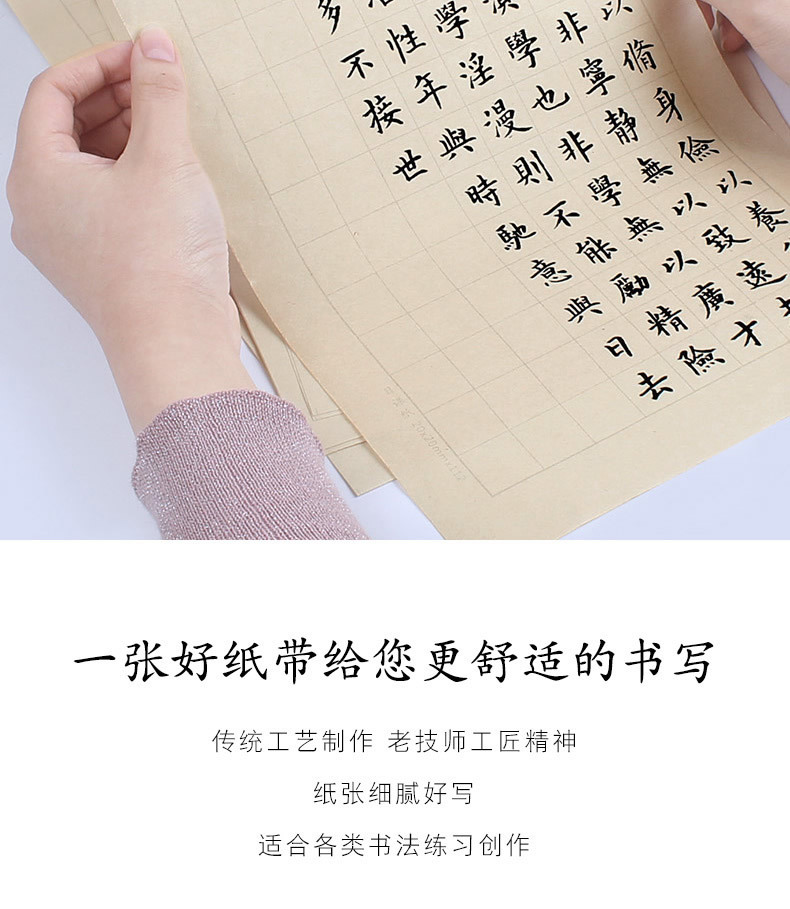 以脩身儉以養
非寧靜無以致遠
學也非學無以廣才
學淫漫則不能勵精險
性年與時馳意與日去
多不接世
一张好纸带给您更舒适的书写
传统工艺制作 老技师工匠精神
纸张细腻好写
适合各类书法练习创作